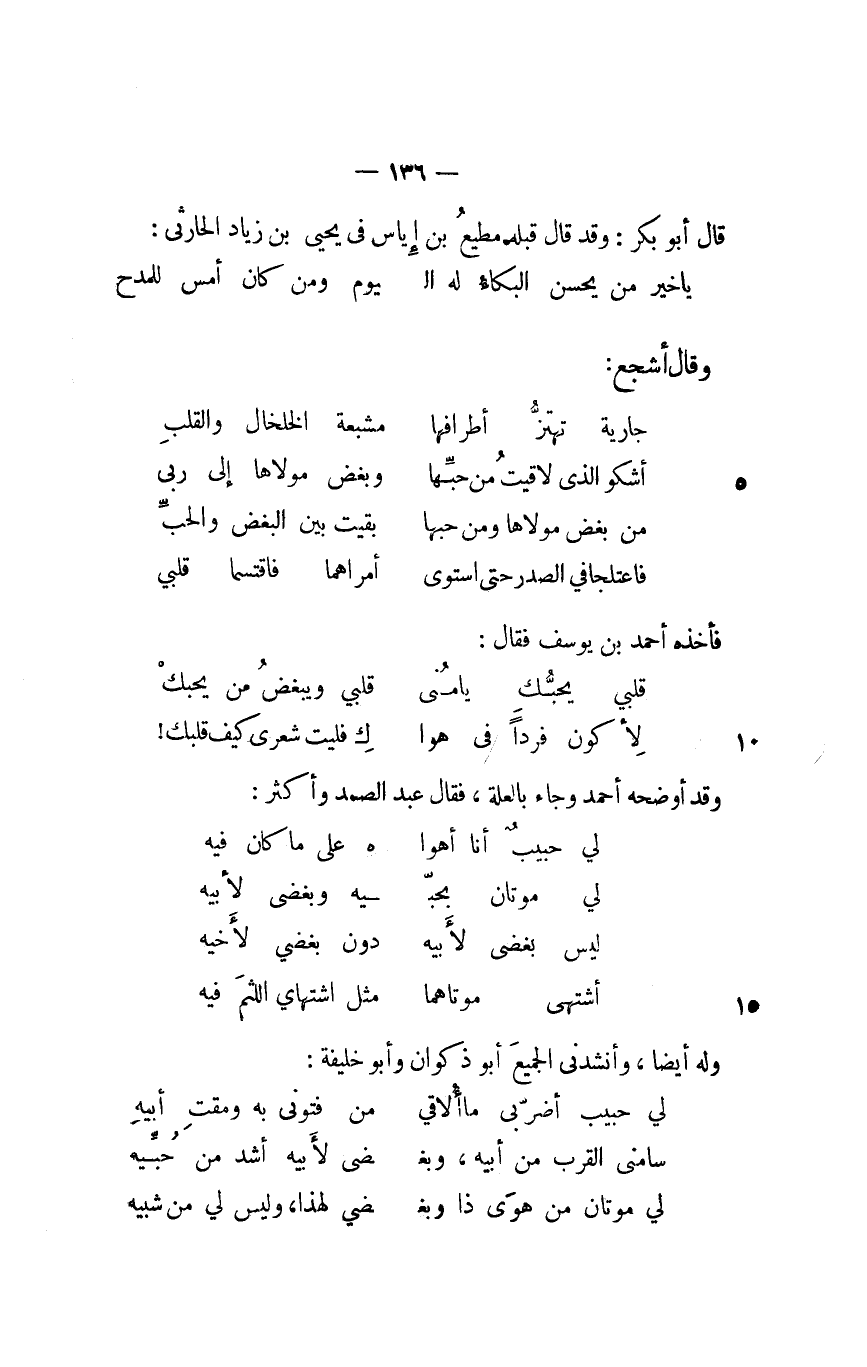 — ١٣٦ —
قال أبو بكر : وقد قال قبله مطيعُ بن إياس فى يحيى بن زياد الحارثى :
ياخير من يحسن البكاءُ له الـ يوم ومن كان أمس للمدح
وقال أشجع :
جارية تهتزُّ أطرافها مشبعة الخلخال والقلبِ
٥ أشكو الذى لاقيتُ من حبِّها وبغض مولاها إلى ربى
من بغض مولاها ومن حبها بقيت بين البغض والحبِّ
فاعتلجا في الصدر حتى استوى أمراهما فاقتسما قلبي
فأخذه أحمد بن يوسف فقال :
قلبي يحبُّـك يامُنـى قلبي ويبغضُ من يحبكْ
١٠ لِأكون فرداً فى هوا كِ فليت شعرى كيف قلبك!
وقد أوضحه أحمد وجاء بالعلة ، فقال عبد الصمد وأكثر :
لي حبيبٌ أنا أهوا ه على ماكان فيه
لي موتان بحبّـ ـيه وبغضى لأبيه
ليس بغضى لأَبيه دون بغضي لأَخيه
١٥ أشتهى موتاهما مثل اشتهاي اللثمَ فيه
وله أيضا ، وأنشدنى الجميعَ أبو ذكوان وأبو خليفة :
لي حبيب أضرّ بى ماأُلاقي من فتونى به ومقتِ أبيهِ
سامنى القرب من أبيه ، وبغـ ـضى لأَبيه أشد من حُبِّـيه
لي موتان من هوَى ذا وبغـ ـضي لهذا، وليس لي من شبيه